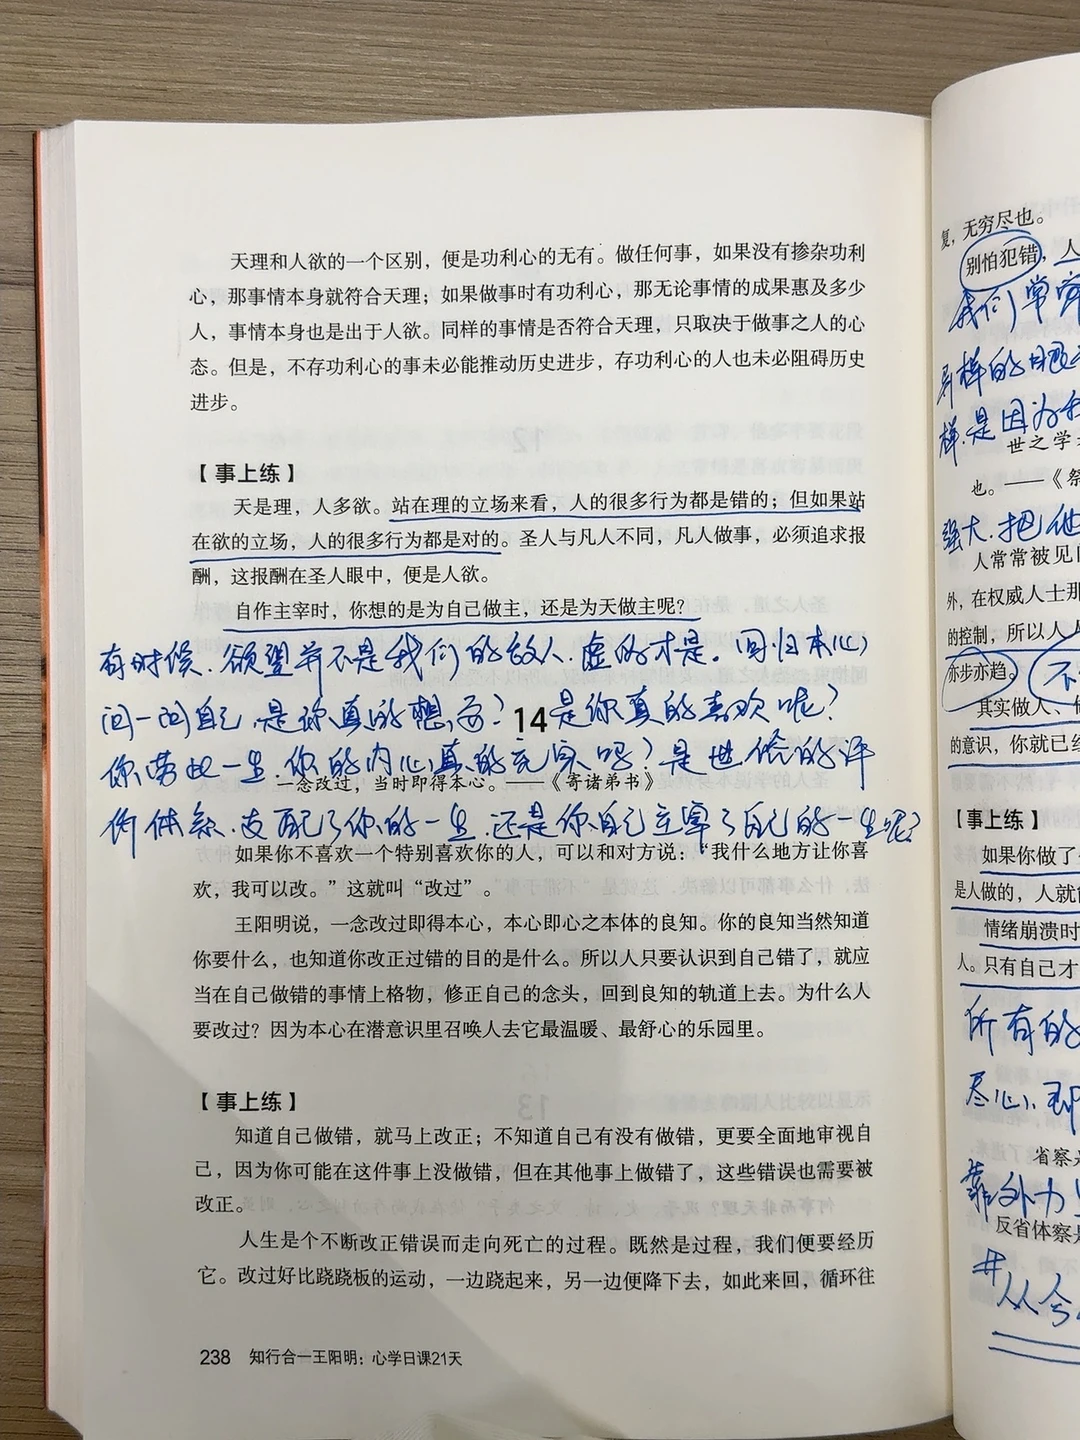 天理和人欲的一个区别，便是功利心的无有。做任何事，如果没有掺杂功利
心，那事情本身就符合天理；如果做事时有功利心，那无论事情的成果惠及多少
人，事情本身也是出于人欲。同样的事情是否符合天理，只取决于做事之人的心
态。但是，不存功利心的事未必能推动历史进步，存功利心的人也未必阻碍历史
进步。
【事上练】
天是理，人多欲。站在理的立场来看，人的很多行为都是错的；但如果站
在欲的立场，人的很多行为都是对的。圣人与凡人不同，凡人做事，必须追求报
酬，这报酬在圣人眼中，便是人欲。
自作主宰时，你想的是为自己做主，还是为天做主呢？
有时候，欲望并不是我们的敌人，虚的才是。回归本心
问一问自己，是你真的想要？是你真的喜欢呢？
14
你劳此一生，你的内心真的充实吗？是世俗的评
一念改过，当时即得本心。——《寄诸弟书》
价体系，支配了你的一生，还是你自己主宰了自己的一生呢？
如果你不喜欢一个特别喜欢你的人，可以和对方说：“我什么地方让你喜
欢，我可以改。”这就叫“改过”。
王阳明说，一念改过即得本心，本心即心之本体的良知。你的良知当然知道
你要什么，也知道你改正过错的目的是什么。所以人只要认识到自己错了，就应
当在自己做错的事情上格物，修正自己的念头，回到良知的轨道上去。为什么人
要改过？因为本心在潜意识里召唤人去它最温暖、最舒心的乐园里。
【事上练】
知道自己做错，就马上改正；不知道自己有没有做错，更要全面地审视自
己，因为你可能在这件事上没做错，但在其他事上做错了，这些错误也需要被
改正。
人生是个不断改正错误而走向死亡的过程。既然是过程，我们便要经历
它。改过好比跷跷板的运动，一边跷起来，另一边便降下去，如此来回，循环往
238 知行合一王阳明：心学日课21天
复，无穷尽也。
别怕犯错，人
我们常常
样的
样，是因为
世之学
也。——《祭
强大，把他
人常常被见
外，在权威人士那
的控制，所以人人
亦步亦趋。不
其实做人、
的意识，你就已经
【事上练】
如果你做了
是人做的，人就
情绪崩溃时
人。只有自己才
所有的
尽心，即
省察
靠外力
反省体察
#从今